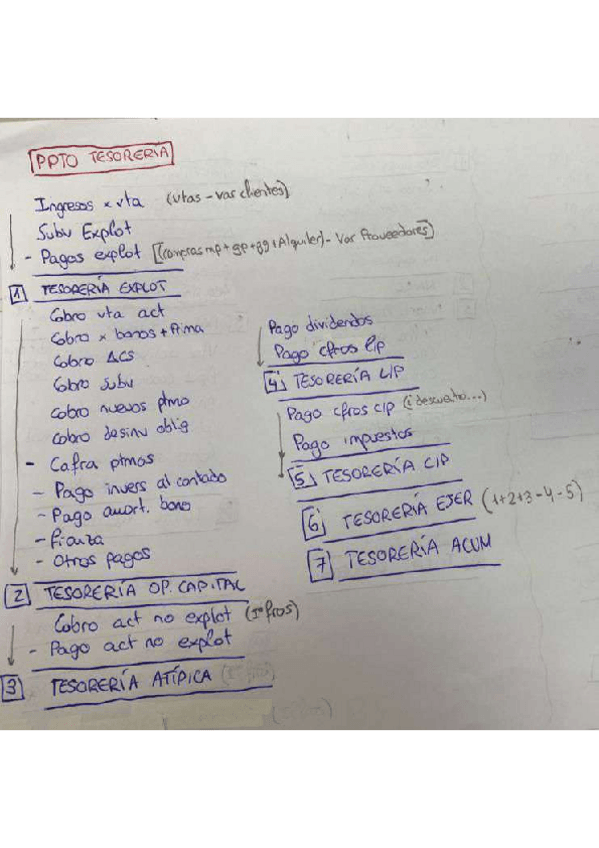 PPTO TESORERÍA
Ingresos x vta (vtas - var clientes)
Subv Explot
- Pagos explot [(compras mp + gp + gg + Alquiler) - Var Proveedores]
1 TESORERÍA EXPLOT
Cobro vta act
Cobro x bonos + Prima
Cobro ΔCS
Cobro subv
Cobro nuevos ptmo
Cobro desinv oblig
- Cafra ptmos
- Pago invers al contado
- Pago amort. bono
- Fianza
- Otros pagos
2 TESORERÍA OP. CAPITAL
Cobro act no explot (Iº fros)
- Pago act no explot
3 TESORERÍA ATÍPICA
Pago dividendos
Pago cfros l/p
4 TESORERÍA L/P
Pago cfros c/p (i descuento...)
Pago impuestos
5 TESORERÍA C/P
6 TESORERÍA EJER (1+2+3-4-5)
7 TESORERÍA ACUM